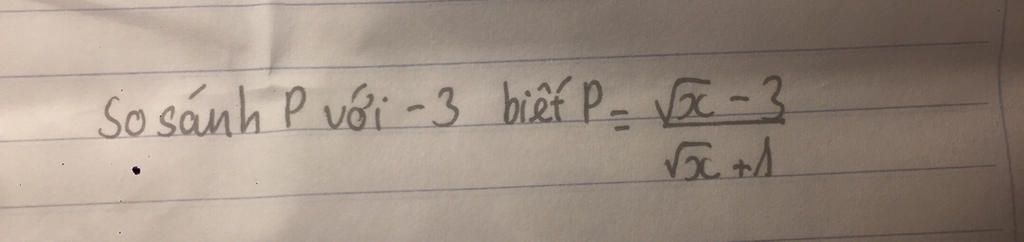 So sánh P với -3 biết P = \frac{\sqrt{x} - 3}{\sqrt{x} + 1}